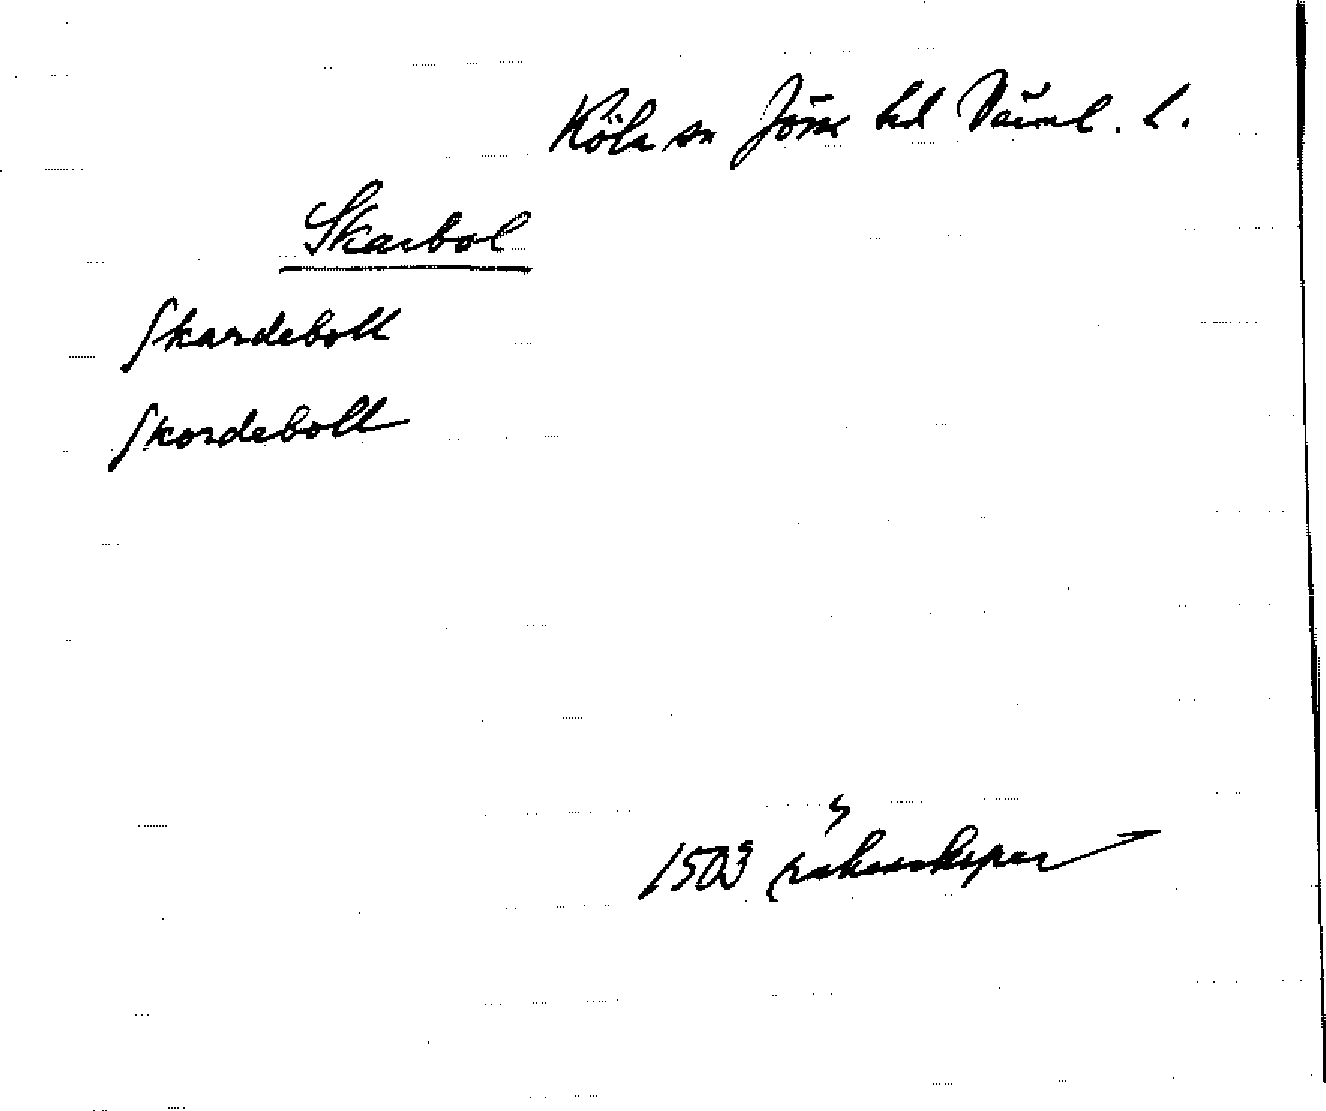 Köla sn Jösse hd Värml. l.
Skarbol
Skardeboll
Skordeboll
1503 räkenskaper